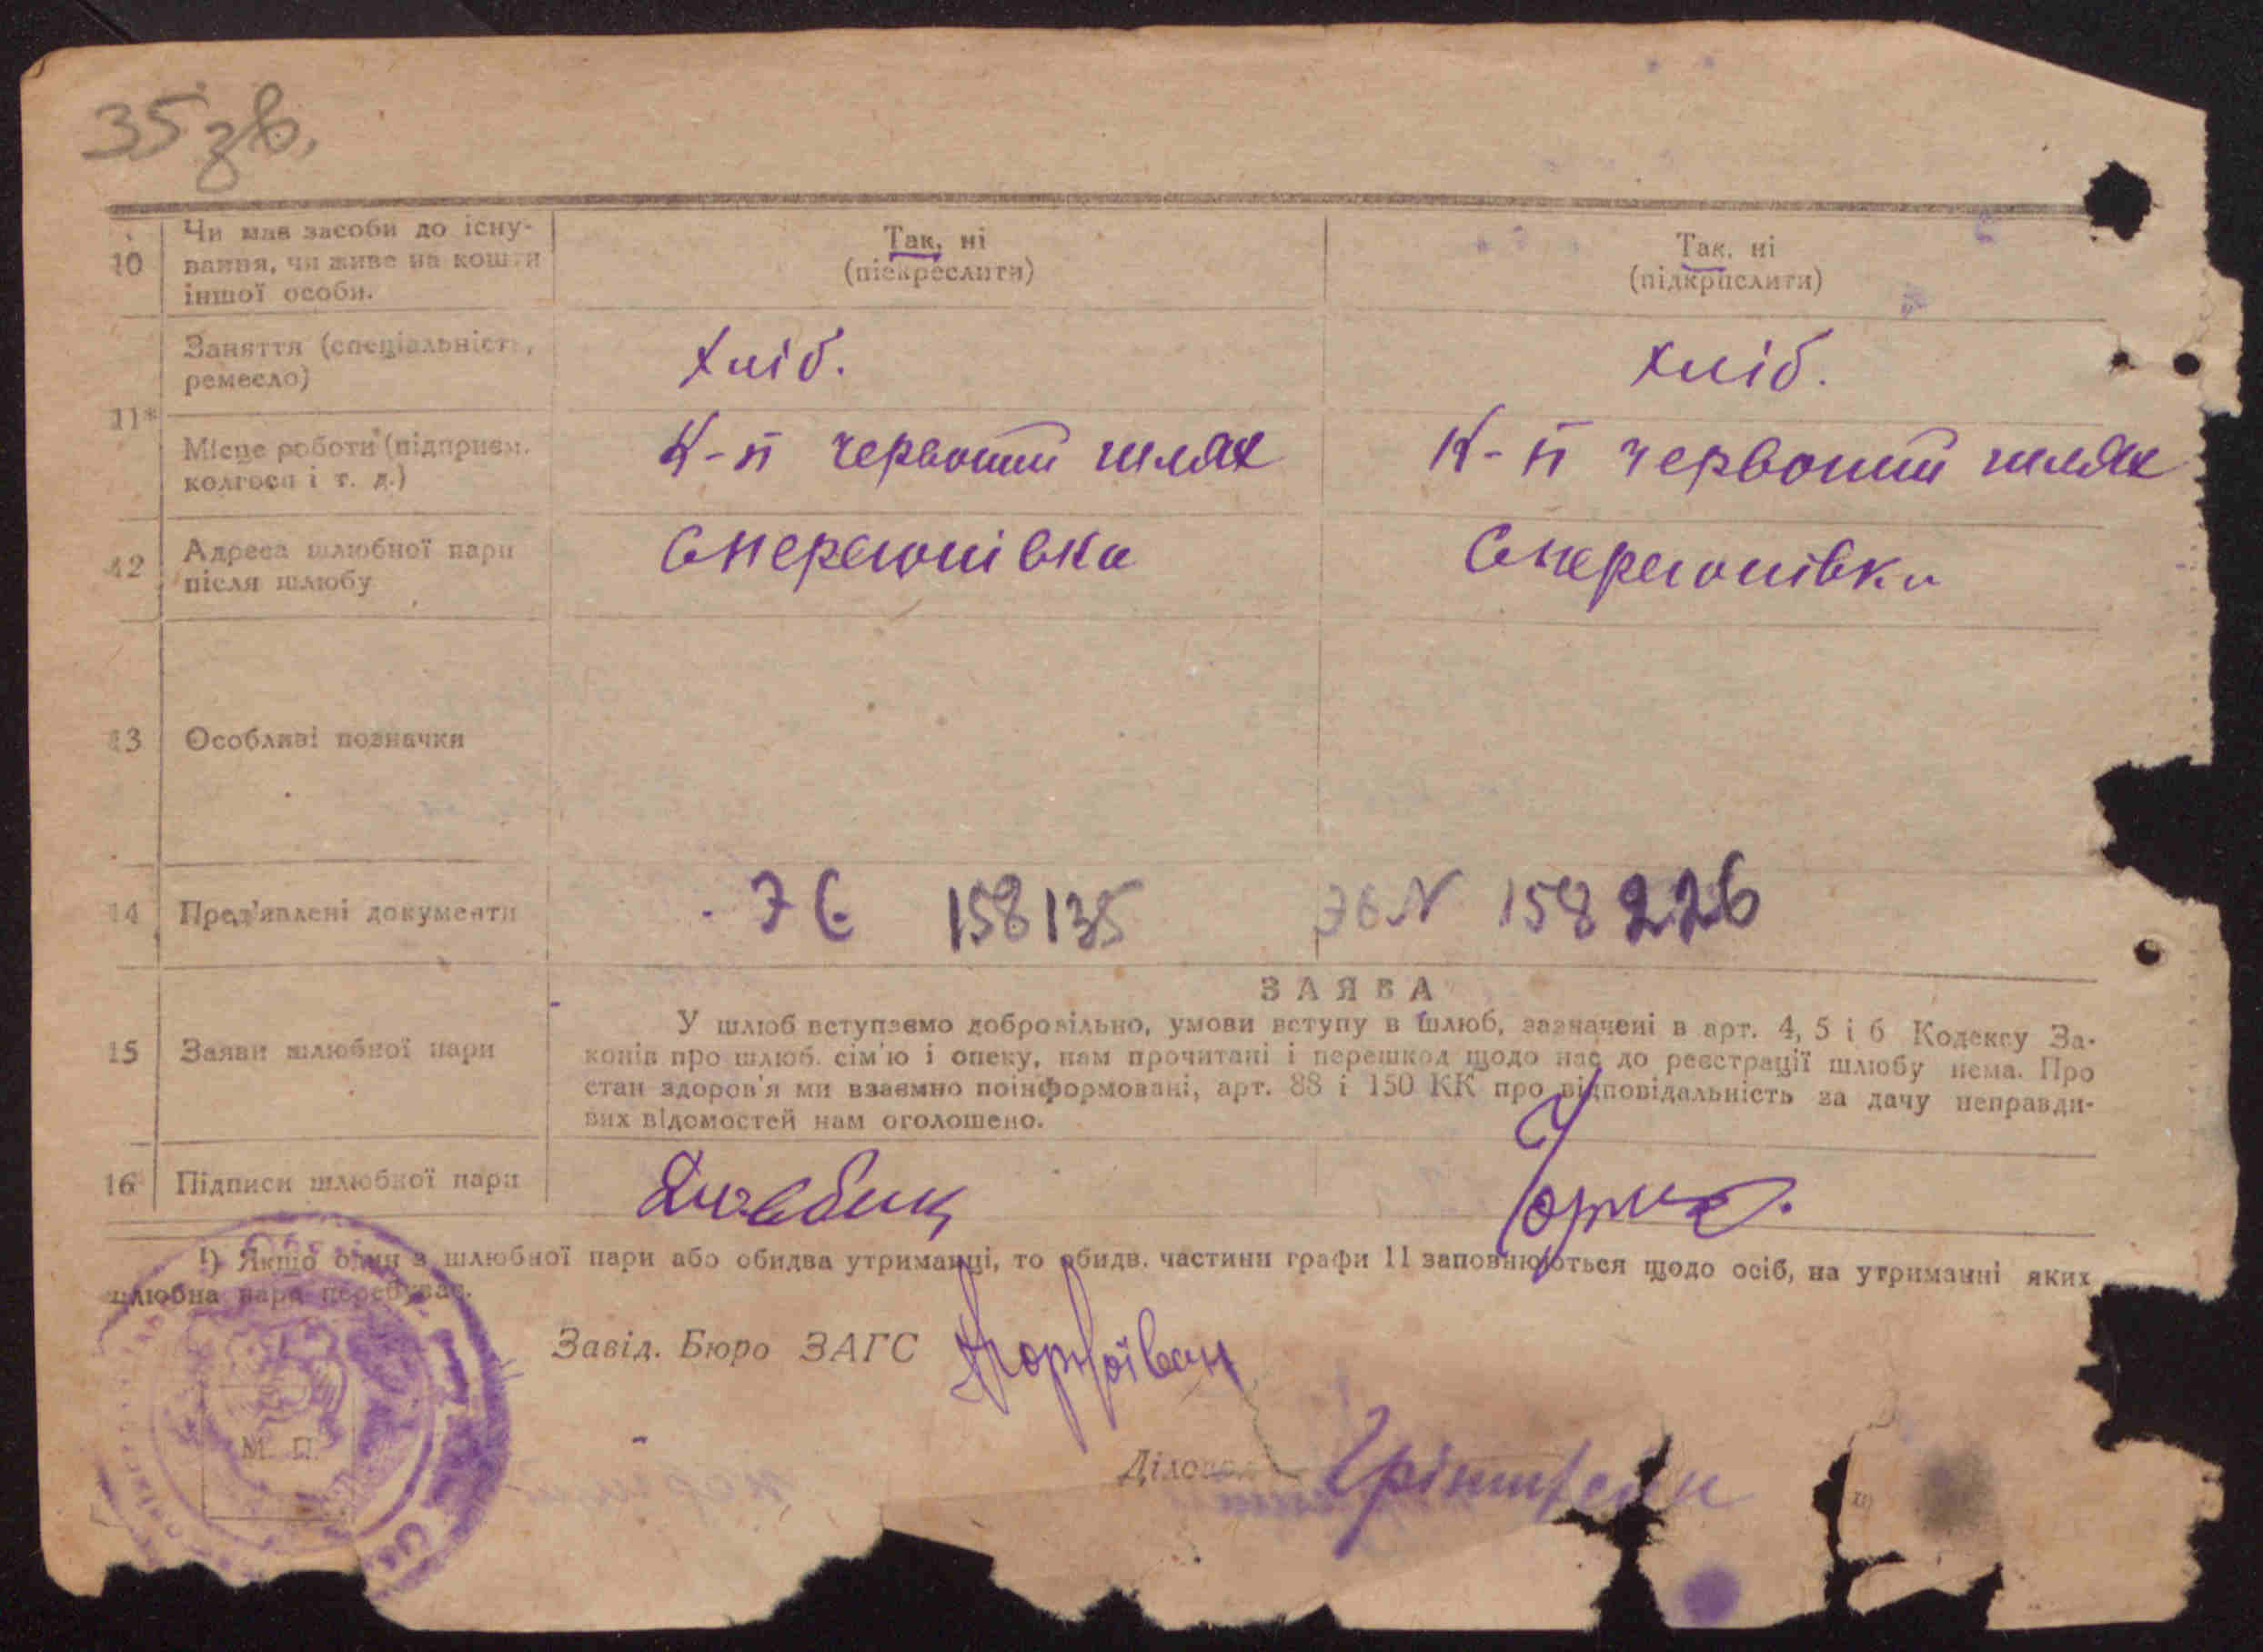 35 зв.
10 Чи має засоби до існу-
вання, чи живе на кошти
іншої особи.
Так, ні
(піекреслити)
Так, ні
(підкрпслити)
11*
Заняття (спеціальність,
ремесло)
Хліб.
Хліб.
Місце роботи (підприєм.
колгосп і т. д.)
К-п червоний шлях
К-п червоний шлях
12 Адреса шлюбної пари
після шлюбу
13 Особливі позначки
14 Пред'явлені документи
158135
158226
15 Заяви шлюбної пари
ЗАЯВА
У шлюб вступаємо добровільно, умови вступу в шлюб, зазначені в арт. 4, 5 і 6 Кодексу За-
конів про шлюб. сім'ю і опеку, нам прочитані і перешкод щодо нас до реєстрації шлюбу нема. Про
стан здоров'я ми взаємно поінформовані, арт. 88 і 150 КК про відповідальність за дачу неправди-
вих відомостей нам оголошено.
16 Підписи шлюбної пари
1) Якщо один з шлюбної пари або обидва утриманці, то обидв. частини графи 11 заповнюються щодо осіб, на утриманні яких
шлюбна пара перебуває.
Завід. Бюро ЗАГС
М. П.